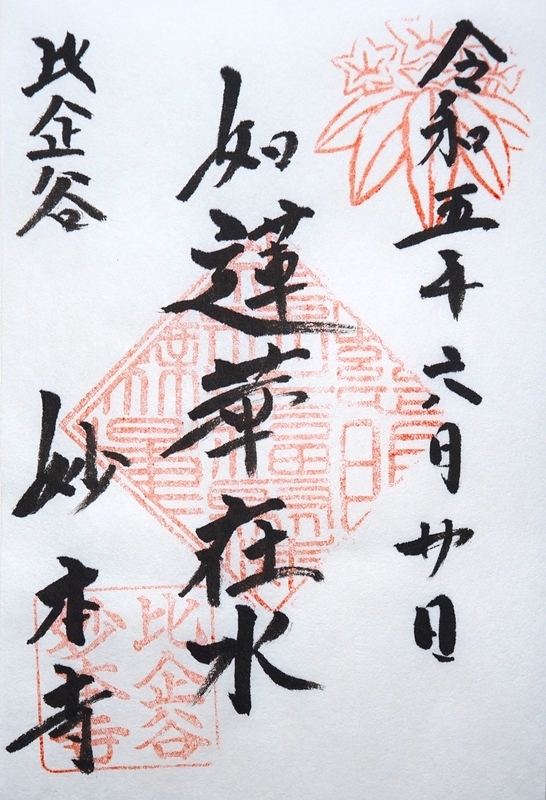 令和五年六月廿日
如蓮華在水
比企谷
妙本寺
比企谷
妙本寺